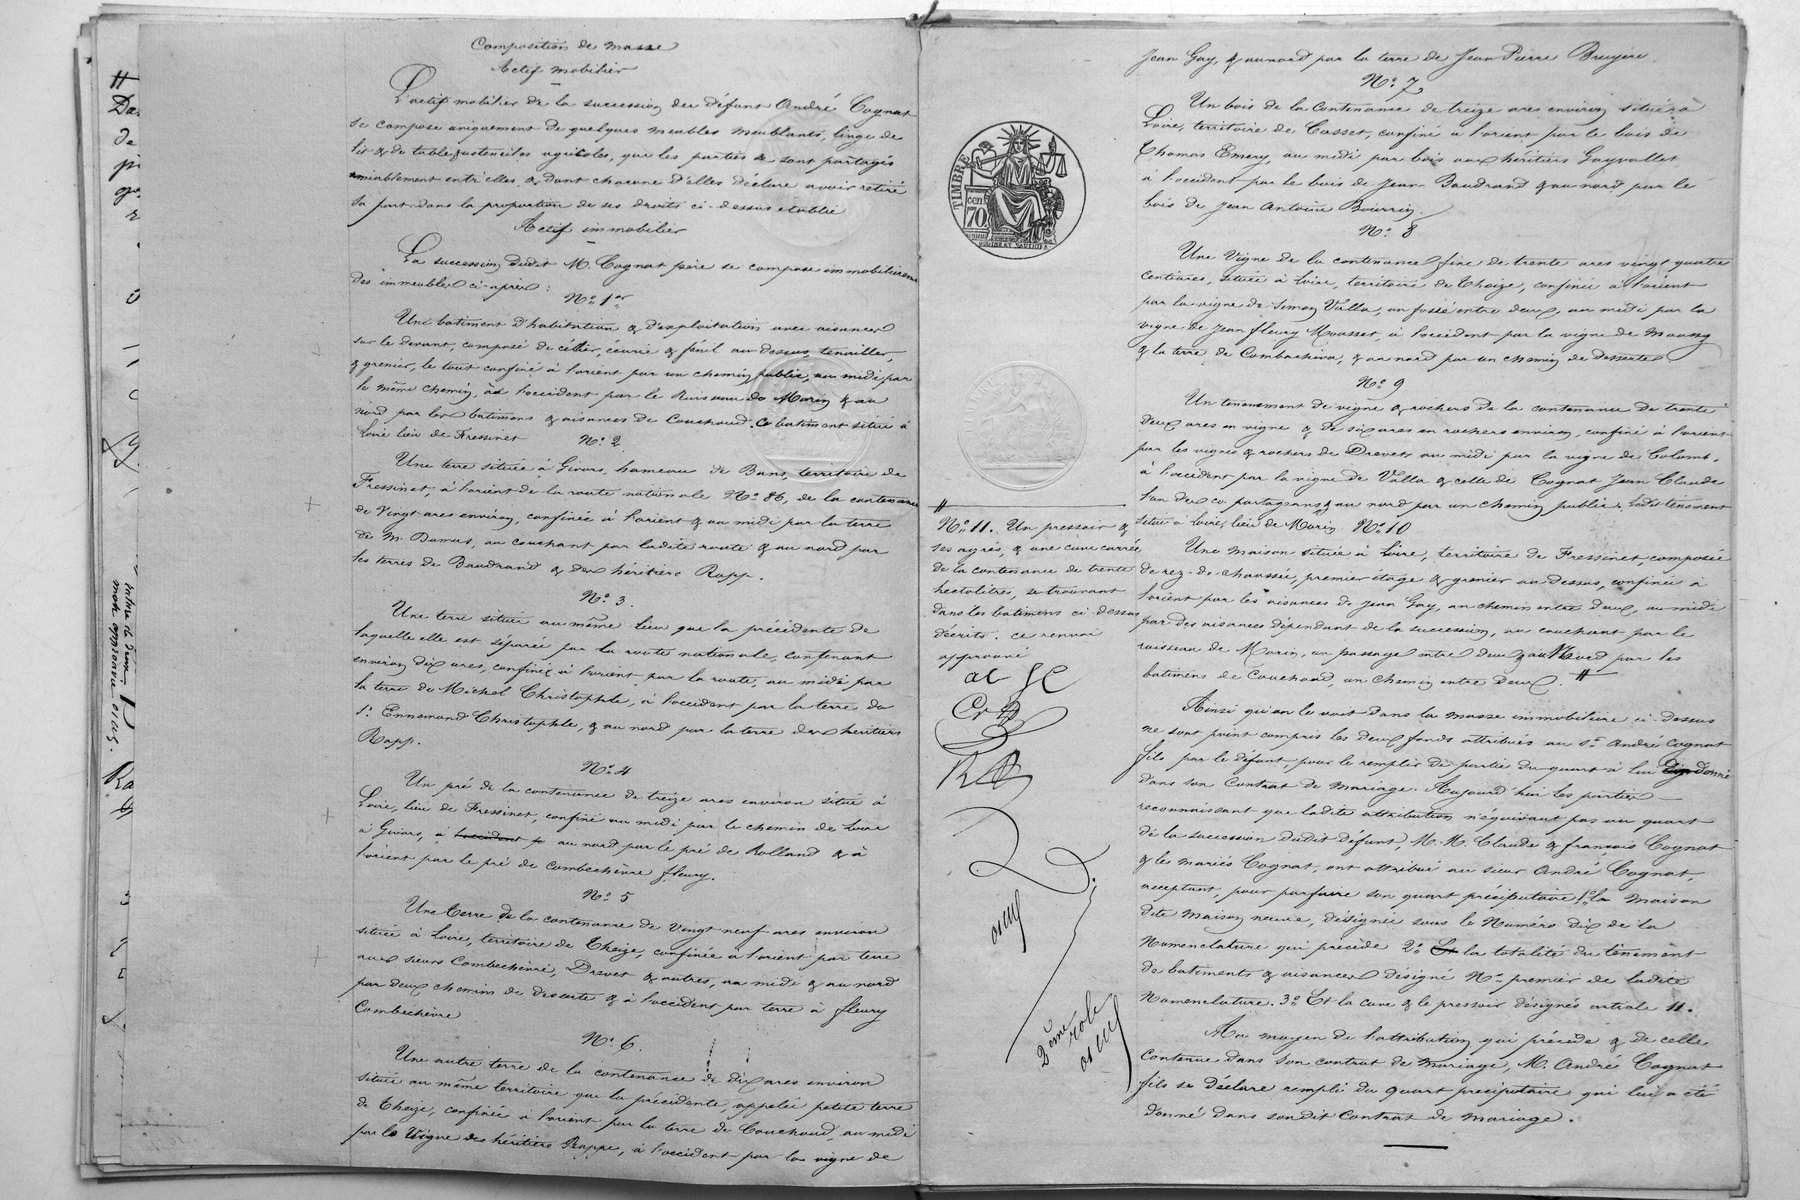 Composition de masse
Actif mobilier
L'actif mobilier de la succession du défunt André Cognat
se compose uniquement de quelques meubles meublants, linge de
lit & de table & ustensiles agricoles, que les parties se sont partagés
amiablement entr'elles, & dont chacune d'elles déclare avoir retiré
sa part dans la proportion de ses droits ci-dessus établie
Actif immobilier
La succession dudit M. Cognat père se compose immobilièrement
des immeubles ci-après :
No. 1er
Un batiment d'habitation & d'exploitation avec aisances
sur le devant, composé de cellier, écurie & fénil au dessus, tenailler,
& grenier, le tout confiné à l'orient par un chemin public, au midi par
le même chemin, à l'occident par le Ruisseau de Morin & au
nord par les batimens & aisances de Couchoud. Ce batiment situé à
Loire lieu de Fressinet
No. 2
Une terre située à Givors, hameau de Bans, territoire de
Fressinet, à l'orient de la route nationale No. 86, de la contenance
de vingt ares environ, confinée à l'orient & au midi par la terre
de M. Dumas, au couchant par ladite route & au nord par
les terres de Baudrand & des héritiers Rapp.
No. 3.
Une terre située au même lieu que la précédente de
laquelle elle est séparée par la route nationale, contenant
environ dix ares, confinée à l'orient par la route, au midi par
la terre de Michel Christophle, à l'occident par la terre de
Sr. Ennemond Christophle, & au nord par la terre des héritiers
Rapp.
No. 4
Un pré de la contenance de treize ares environ situé à
Loire, lieu de Fressinet, confiné au midi par le chemin de Loire
à Givors, à l'occident p au nord par le pré de Rolland & à
l'orient par le pré de Combechèvre fleury.
No. 5
Une terre de la contenance de vingt neuf ares environ
située à Loire, territoire de Theize, confinée à l'orient par terre
aux sieurs Combechèvre, Drevet & autres, au midi & au nord
par deux chemins de desserte & à l'occident par terre à fleury
Combechèvre
No. 6.
Une autre terre de la contenance de dix ares environ
située au même territoire que la précédente, appelée petite terre
de Theize, confinée à l'orient par la terre de Couchoud, au midi
par la vigne des héritiers Rappe, à l'occident par la vigne de
Jean Gay, & au nord par la terre de Jean Pierre Bruyère.
No. 7
Un bois de la contenance de treize ares environ situé à
Loire, territoire de Casset, confiné à l'orient par le bois de
Thomas Emery, au midi par bois aux héritiers Gayvallet
à l'occident par le bois de Jean Baudrand & au nord par le
bois de Jean Antoine Bourrin.
No. 8
Une vigne de la contenance fixe de trente ares vingt quatre
centiares, située à Loire, territoire de Theize, confinée à l'orient
par la vigne de Simon Valla, un fossé entre deux, au midi par la
vigne de Jean fleury Mousset, à l'occident par la vigne de Moussy
& la terre de Combechèvre, & au nord par un chemin de desserte
No. 9
Un tènement de vigne & rochers de la contenance de trente
deux ares en vigne & de six ares en rochers environ, confiné à l'orient
par les vignes & rochers de Drevet, au midi par la vigne de Colomb,
à l'occident par la vigne de Valla & celle de Cognat Jean Claude
l'un des co-partageans & au nord par un chemin public. Ledit tènement
situé à Loire, lieu de Morin
No. 10
Une maison située à Loire, territoire de Fressinet, composée
de rez-de-chaussée, premier étage & grenier au dessus, confinée à
l'orient par les aisances de Jean Gay, un chemin entre deux, au midi
par des aisances dépendant de la succession, au couchant par le
ruisseau de Morin, un passage entre deux & au Nord par les
batimens de Couchoud, un chemin entre deux. #
Ainsi qu'on le voit dans la masse immobilière ci-dessus
ne sont point compris les deux fonds attribués au Sr. André Cognat
fils par le défunt, pour le remplir de partie du quart à lui donné
dans son contrat de mariage. Aujourd'hui les parties
reconnaissant que ladite attribution n'équivaut pas au quart
de la succession dudit défunt, M. M. Claude & françois Cognat
& les mariés Cognat, ont attribué au sieur André Cognat,
acceptant, pour parfaire son quart préciputaire 1o. la maison
dite maison neuve, désignée sous le Numéro dix de la
Nomenclature qui précède 2o. la totalité du tènement
de batiments & aisances désigné No. premier de ladite
Nomenclature. 3o. Et la cuve & le pressoir désignés article 11.
Au moyen de l'attribution qui précède & de celle
contenue dans son contrat de mariage, M. André Cognat
fils se déclare rempli du quart préciputaire qui lui a été
donné dans sondit contrat de mariage.
#
No. 11. Un pressoir &
ses agrès, & une cuve carrée
de la contenance de trente
hectolitres, se trouvant
dans les batimens ci-dessus
décrits. ce renvoi
approuvé
aC JC
2ème rôle
TIMBRE
70 cen